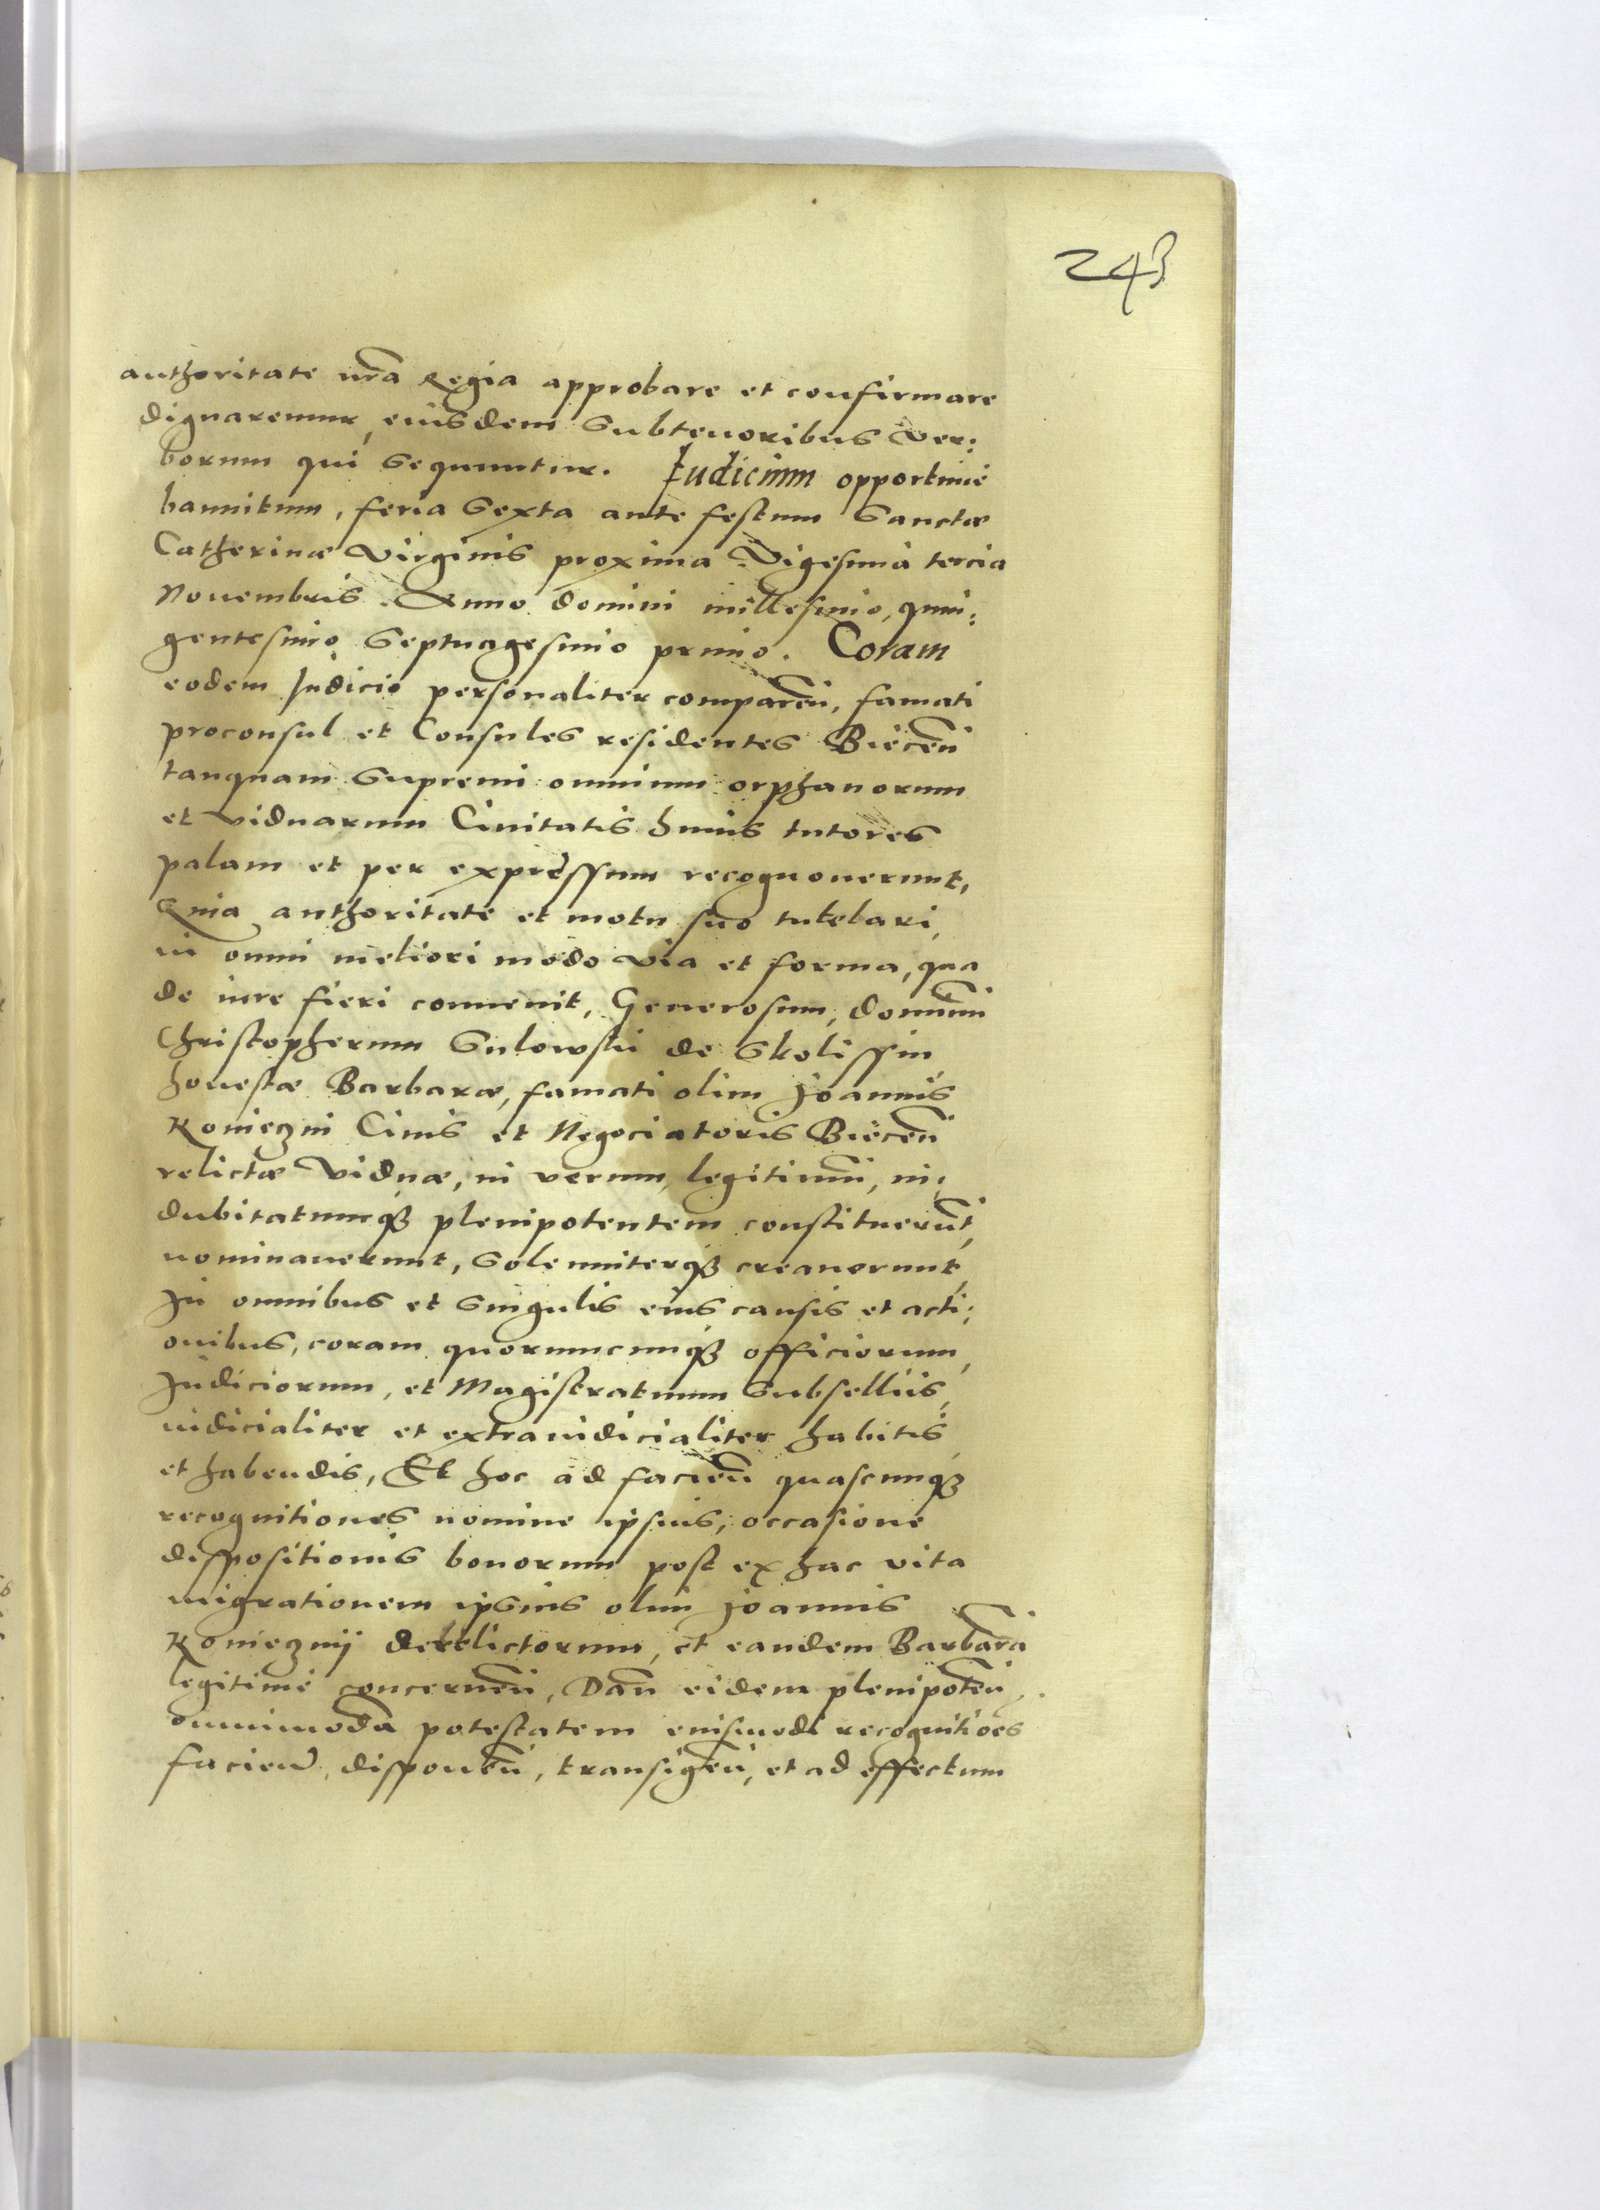 243
authoritate nrã Regia approbare et confirmare
dignaremur, eiusdem subtenoribus ver:
borum qui sequuntur. Iudicium opportune
bannitum, feria sexta ante festum Sanctæ
Catherinæ Virginis proxima Vigesima tercia
Nouembris. Anno domini millesimo, quin:
gentesimo Septuagesimo primo. Coram
eodem Iudicio personaliter comparen̄, famati
proconsul et Consules residentes Biecen̄
tanquam supremi omnium orphanorum
et viduarum Ciuitatis huius tutores
palam et per expressum recognouerunt,
Quia authoritate et motu suo tutelari,
in omni meliori modo via et forma, qua
de iure fieri conuenit, Generosum, dominū
Christopherum Sulowski de Skolissin
honestæ Barbaræ, famati olim Joannis
Konieczni Ciuis et Negociatoris Biecen̄
relictæ Viduæ, in verum, legitimū, in:
dubitatumq3 plenipotentem constituerūt,
nominauerunt, solenniterq3 creauerunt,
In omnibus et singulis eius causis et acti:
onibus, coram quorumcunq3 officiorum,
Judiciorum, et Magistratuum subselliis,
iudicialiter et extraiudicialiter habitis
et habendis, Et hoc ad facien̄ quascunq3
recognitiones nomine ipsius, occasione
dispositionis bonorum post ex hac vita
migrationem ipsius olim Joannis
Koniecznij derelictorum, et eandem Barbarā
legitime concernen̄, Dan̄ eidem plenipoten̄
omnimodā potestatem eiusmodi recognitiōes
faciend̄, disponen̄, transigen̄, et ad effectum